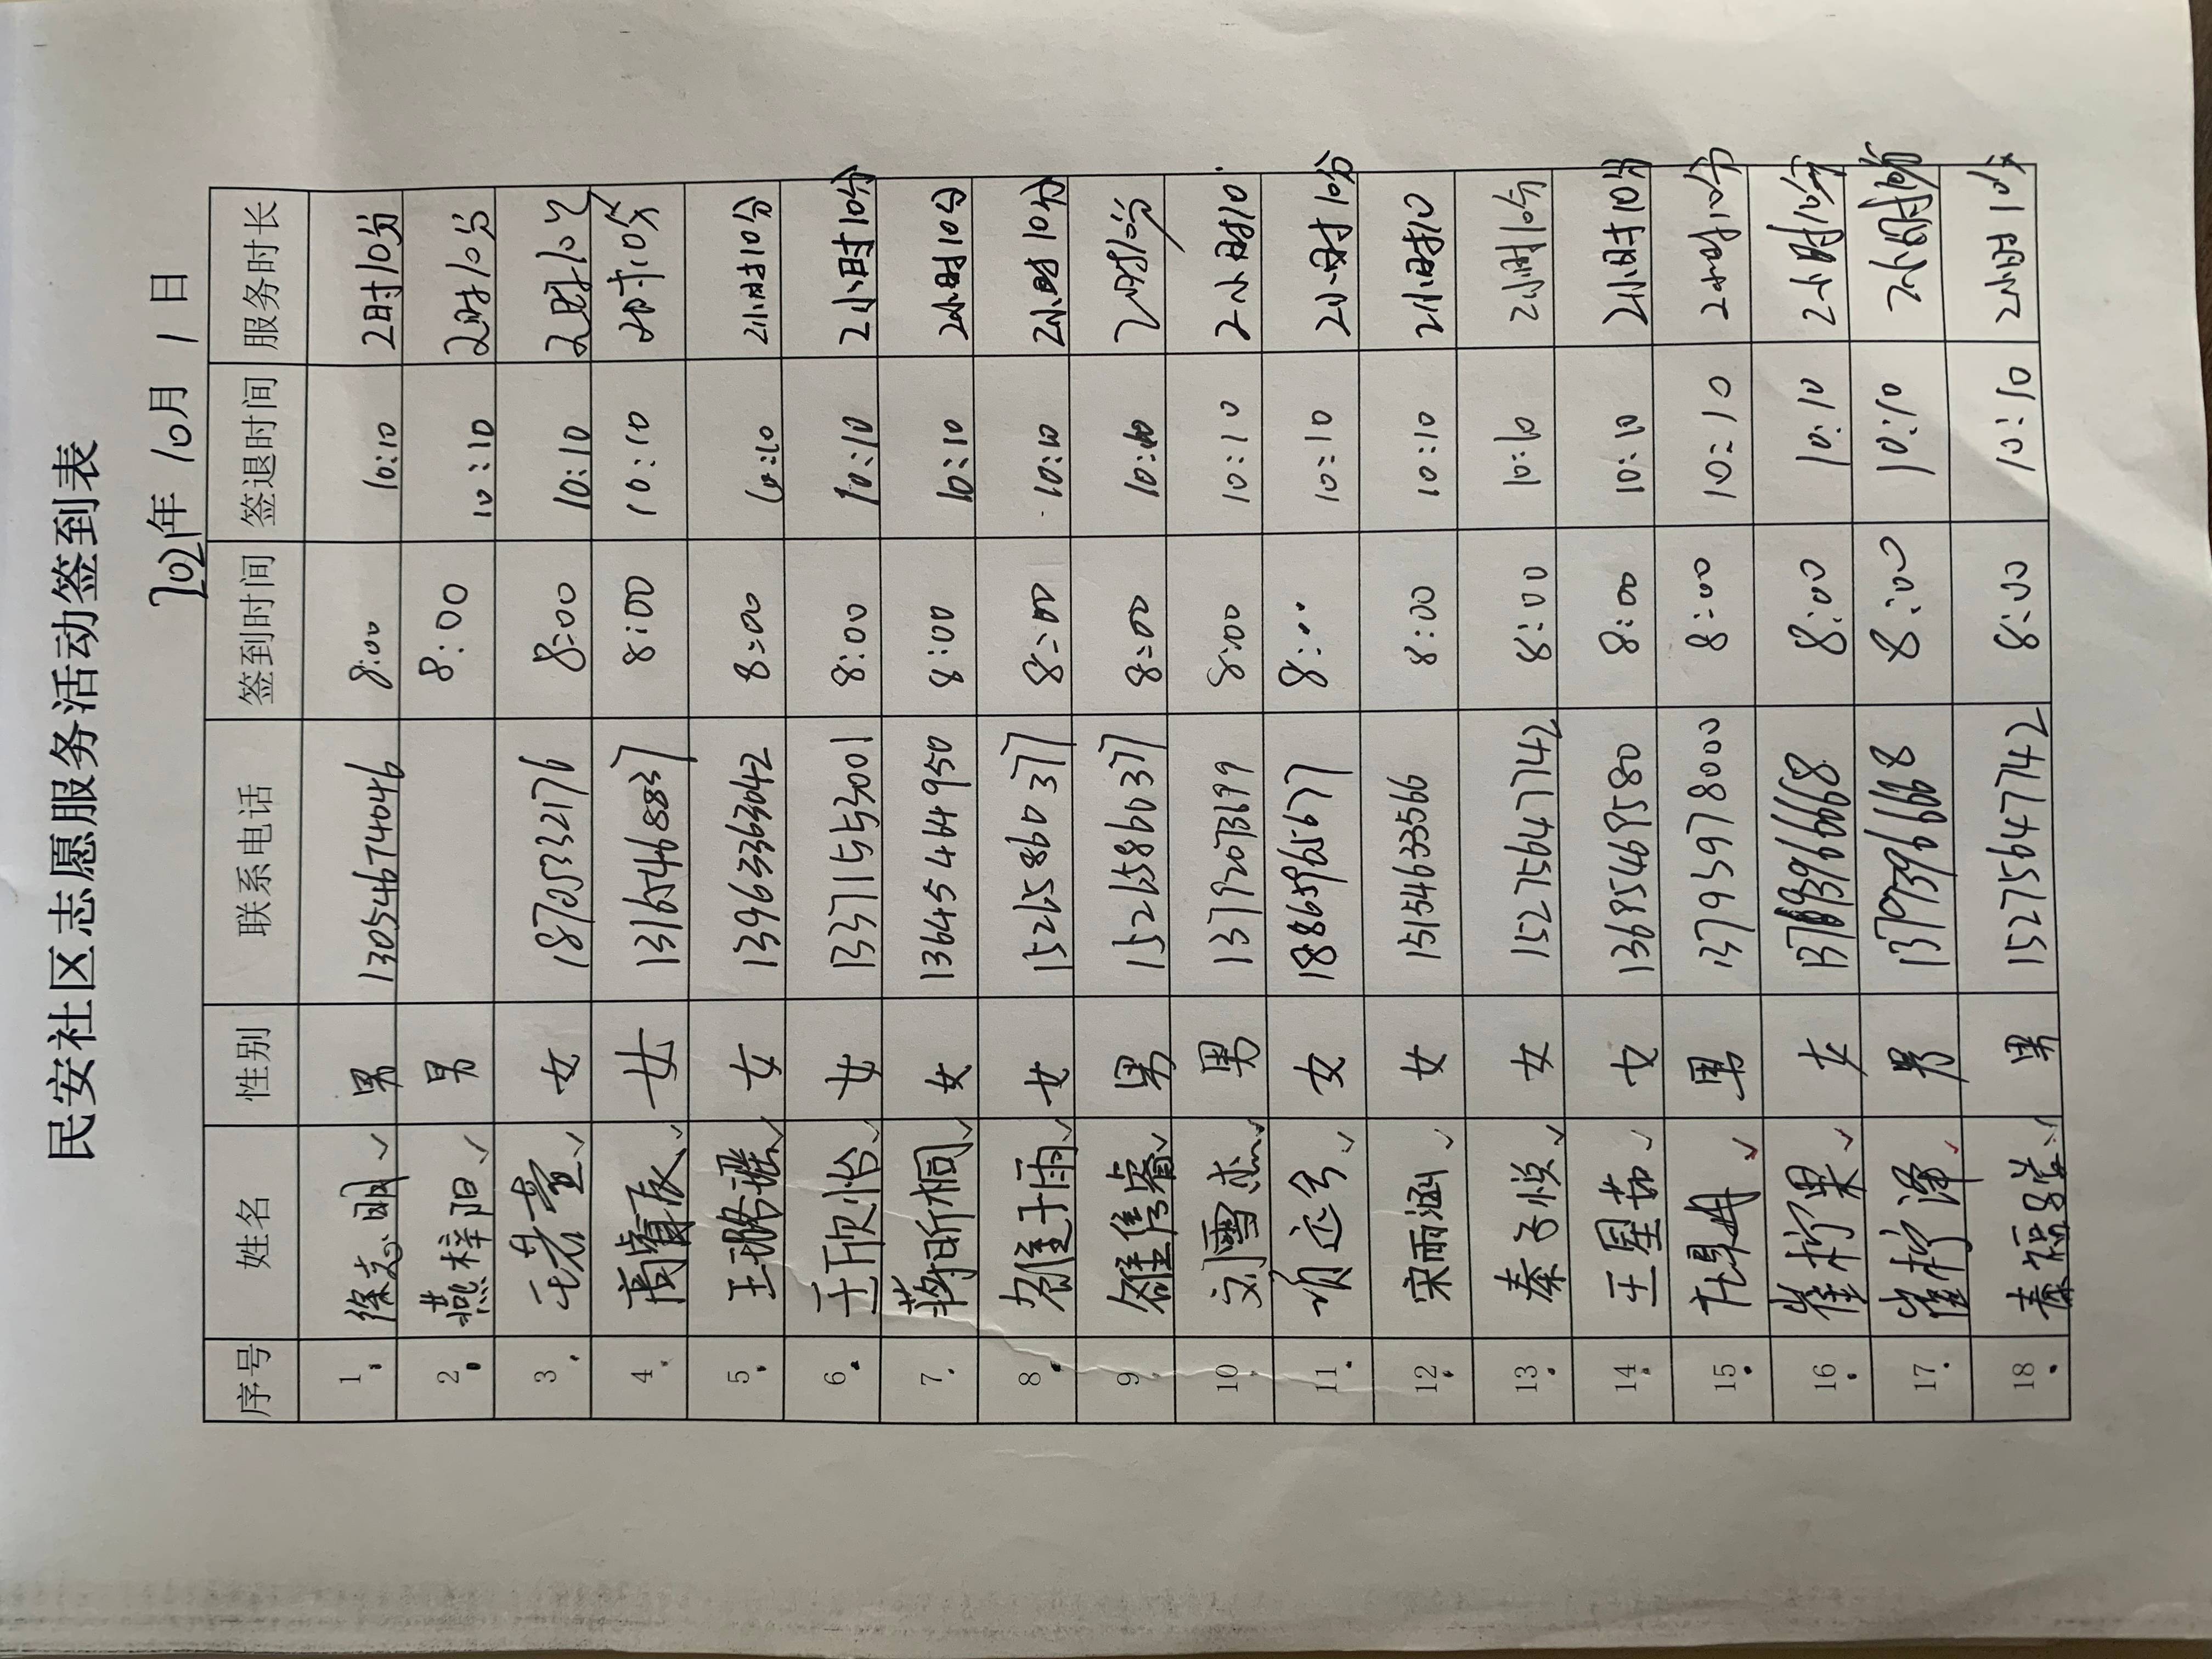 民安社区志愿服务活动签到表
2021年 10月 1 日
序号 姓名 性别 联系电话 签到时间 签退时间 服务时长
1. 徐志明 ✓ 男 13054674046 8:00 10:10 2时10分
2. 燕梓阳 ✓ 男 8:00 10:10 2时10分
3. ✓ 女 18725332176 8:00 10:10 2时10分
4. 高睿辰 ✓ 女 13165468837 8:00 10:10 2时10分
5. 王璐瑶 ✓ 女 13963363042 8:00 10:10 2小时10分
6. 王欣怡 ✓ 女 13371553001 8:00 10:10 2小时10分
7. 蒋昕桐 ✓ 女 13645464950 8:00 10:10 2小时10分
8. ✓ 女 15265860377 8:00 10:10 2小时10分
9. ✓ 男 15265860377 8:00 10:10 2时10分
10 刘雪杰 ✓ 男 13792073699 8:00 10:10 2小时10
11. ✓ 女 18865965677 8:00 10:10 2小时10分
12. 宋雨涵 ✓ 女 15154633566 8:00 10:10 2小时10
13. 秦子悦 ✓ 女 15275647742 8:00 10:10 2小时10分
14. 王星茹 ✓ 女 13685469580 8:00 10:10 2小时10分
15. ✓ 男 13795978000 8:00 10:10 2小时10分
16. 崔柠果 ✓ 女 8:00 10:10 2小时10分
17. 崔柠泽 ✓ 男 13793966668 8:00 10:10 2小时10分
18. ✓ 男 15275647742 8:00 10:10 2小时10分